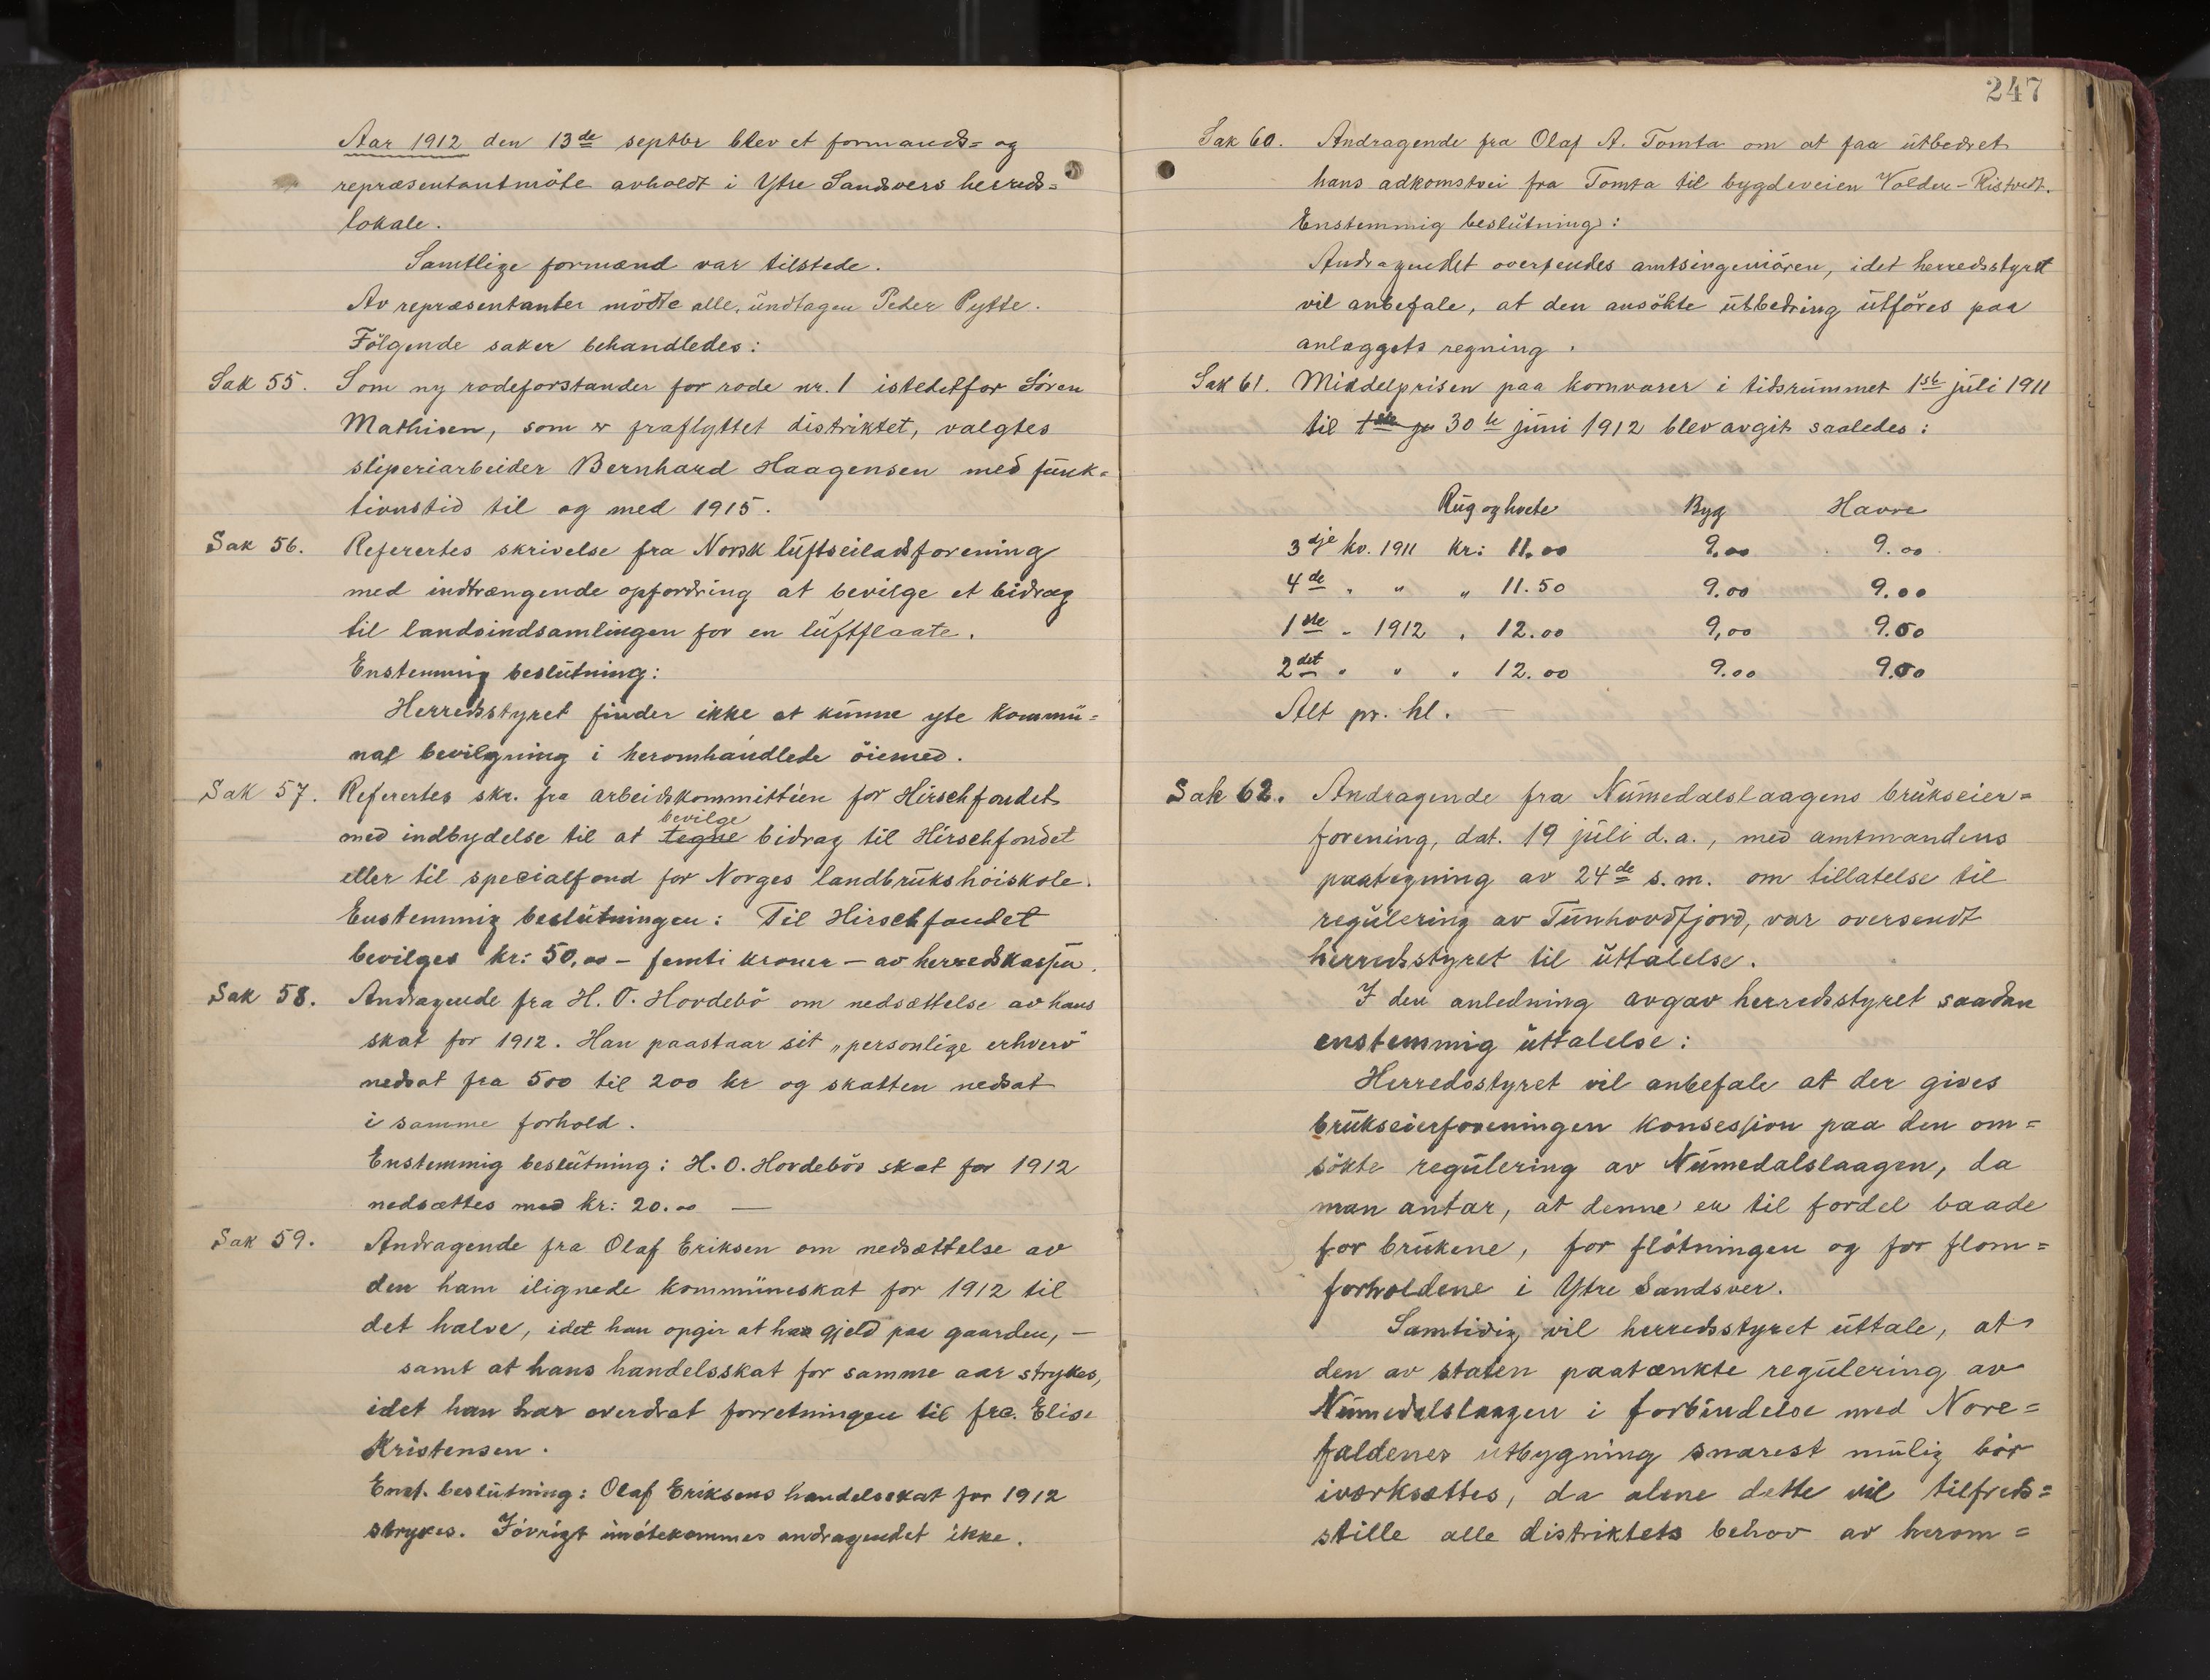 Aar 1912 den 13de septbr blev et formands= og
repræsentantmöte avholdt i Ytre Sandsvers herreds=
lokale.
Samtlige formænd var tilstede.
Av repræsentanter mödte alle, undtagen Peder Pytte.
Fölgende saker behandledes:
Sak 55. Som ny rodeforstander for rode nr. 1 istedetfor Sören
Mathisen, som er fraflyttet distriktet, valgtes
sliperiarbeider Bernhard Haagensen med funk=
tionstid til og med 1915.
Sak 56. Referertes skrivelse fra Norsk luftseiladsforening
med indtrængende opfordring at bevilge et bidrag
til landsindsamlingen for en luftflaate.
Enstemmig beslutning:
Herredsstyret finder ikke at kunne yte kommu=
nal bevilgning i heromhandlede öiemed.
Sak 57. Referertes skr. fra arbeidskommitteen for Hirschfondet
bevilge
med indbydelse til at tegne bidrag til Hirschfondet
eller til specialfond for Norges landbrukshöiskole.
Enstemmig beslutningen: Til Hirschfondet
bevilges kr: 50,00 – femti kroner – av herredskassen.
Sak 58. Andragende fra H. O. Hordebö om nedsættelse av hans
skat for 1912. Han paastaar sit „personlige erhverv"
nedsat fra 500 til 200 kr og skatten nedsat
i samme forhold.
Enstemmig beslutning: H. O. Hordebös skat for 1912
nedsættes med kr: 20.00 —
Sak 59. Andragende fra Olaf Eriksen om nedsættelse av
den ham ilignede kommuneskat for 1912 til
det halve, idet han opgir at ha gjeld paa gaarden, –
samt at hans handelsskat for samme aar strykes,
idet han har overdrat forretningen til frk. Elise
Kristensen.
Enst. beslutning: Olaf Eriksens handelsskat for 1912
strykes. Iövrigt imötekommes andragendet ikke.
247
Sak 60. Andragende fra Olaf A. Tomta om at faa utbedret
hans adkomstvei fra Tomta til bygdeveien Volden – Ristvedt.
Enstemmig beslutning:
Andragendet oversendes amtsingeniören, idet herredsstyret
vil anbefale, at den ansökte utbedring utföres paa
anlæggets regning.
Sak 61. Middelprisen paa kornvarer i tidsrummet 1ste juli 1911
til 1ste ju 30te juni 1912 blev avgit saaledes:
Rug og hvete Byg Havre
3dje kv. 1911 kr: 11.00 9.00 9.00
4de " " " 11.50 9.00 9.00
1ste " 1912 " 12.00 9,00 9.00
2det " " " 12.00 9.00 9.00
Alt pr. hl. —
Sak 62. Andragende fra Numedalslaagens brukseier=
forening, dat. 19 juli d.a., med amtmandens
paategning av 24de s.m. om tillatelse til
regulering av Tunhovdfjord, var oversendt
herredsstyret til uttalelse.
I den anledning avgav herredsstyret saadan
enstemmig uttalelse:
Herredsstyret vil anbefale at der gives
brukseierforeningen konsession paa den om=
sökte regulering av Numedalslaagen, da
man antar, at denne er til fordel baade
for brukene, for flötningen og for flom=
forholdene i Ytre Sandsver.
Samtidig vil herredsstyret uttale, at
den av staten paatænkte regulering av
Numedalslaagen i forbindelse med Nore=
faldenes utbygning snarest mulig bör
iverksættes, da alene dette vil tilfreds=
stille alle distriktets behov av herom=